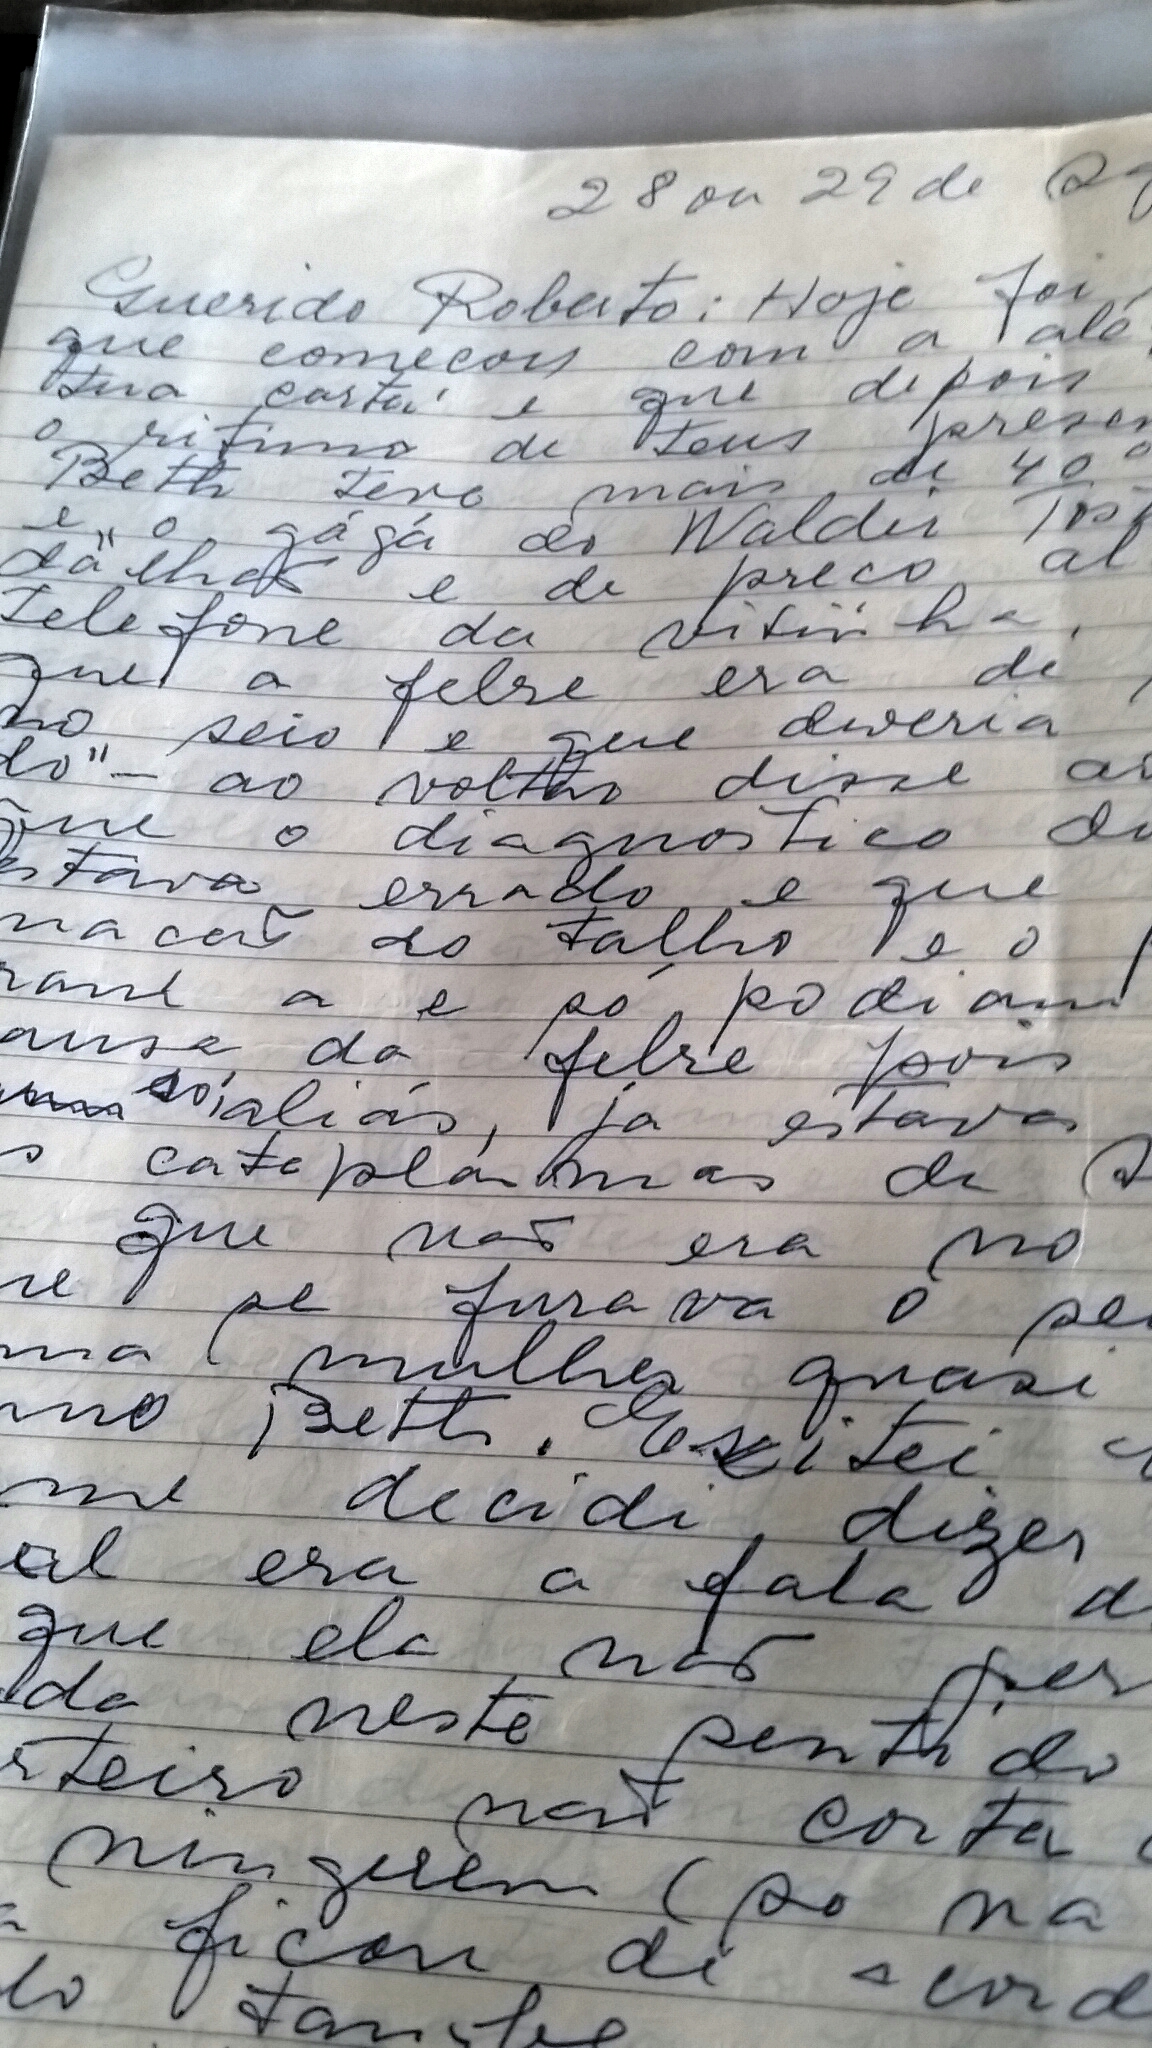 28 ou 29 de
Querido Roberto: Hoje foi
que começou com a ale
tua carta e que depois
o ritmo de teus presen
Beth teve mais de 40°
e o gágá do Waldir
da" lhar e de preco al
telefone da vitinha,
que a felre era de
no seio e que deveria
do" — ao voltar disse ao
que o diagnostico du
estava errado e que
macaõ do talho e o
rand a e só podiam
ausa da felre pois
só, aliás, ja estava
s cataplásmas de
que naõ era no
ue se furava o sei
ma mulher quasi
mo Beth. Exitei
me decidi, dizer
al era a fala d
que ela naõ per
da neste sentido
rteiro naõ corta
ninguem (so na
a ficou de acord
do tambe